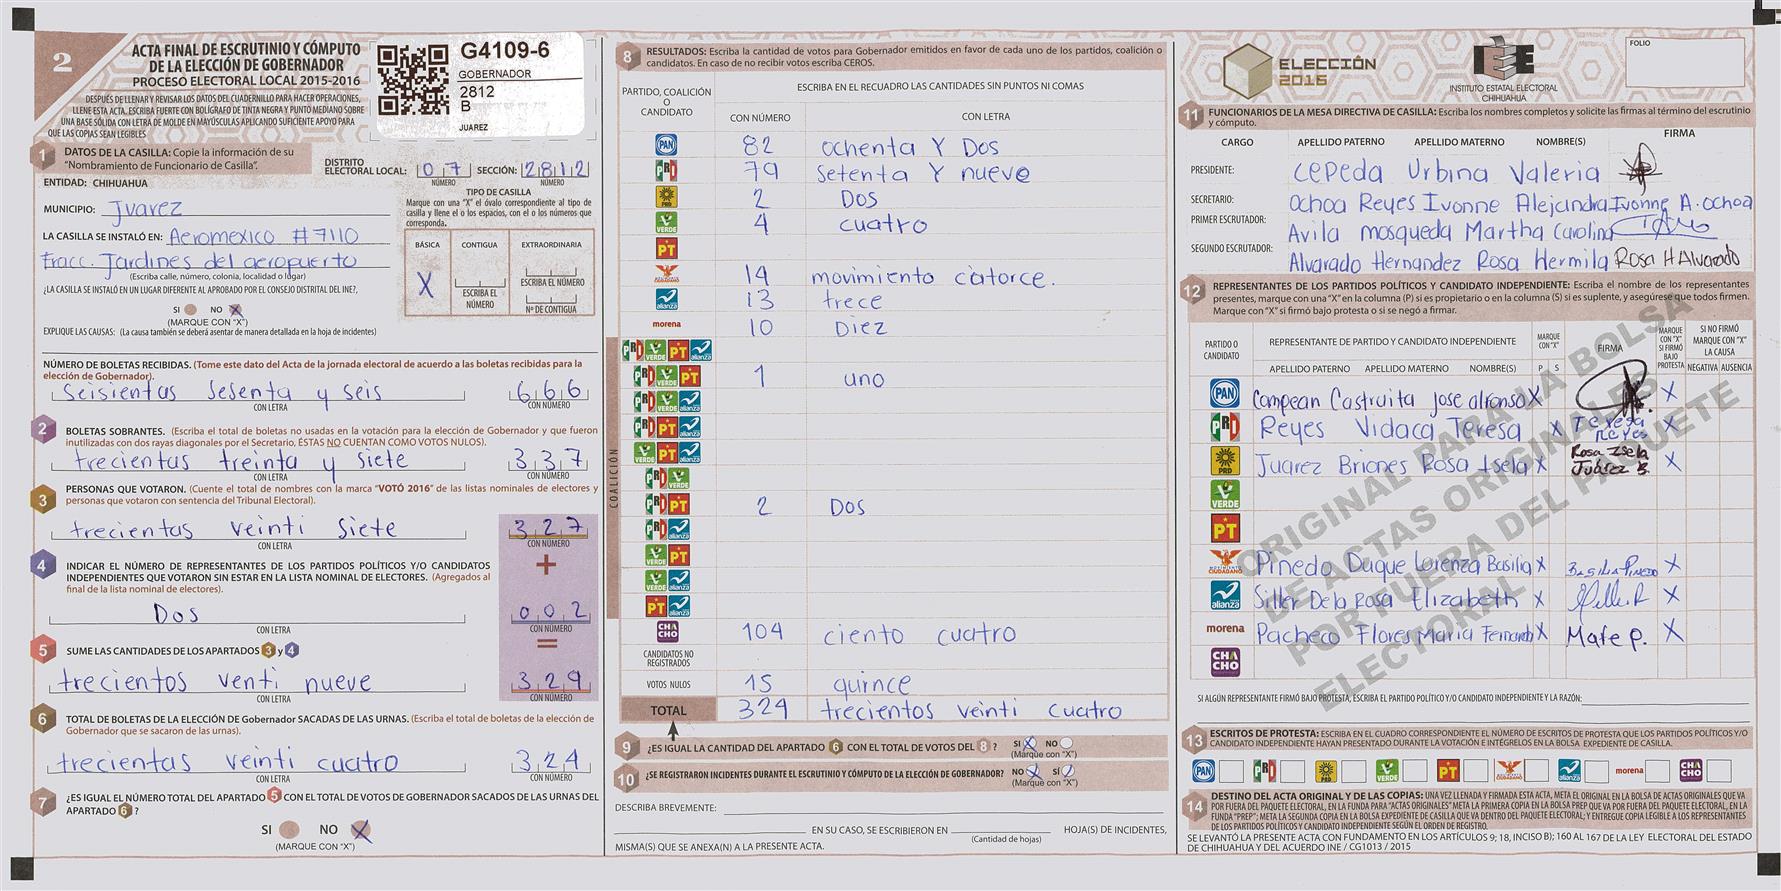 2
ACTA FINAL DE ESCRUTINIO Y CÓMPUTO
DE LA ELECCIÓN DE GOBERNADOR
PROCESO ELECTORAL LOCAL 2015-2016
DESPUÉS DE LLENAR Y REVISAR LOS DATOS DEL CUADERNILLO PARA HACER OPERACIONES,
LLENE ESTA ACTA. ESCRIBA FUERTE CON BOLÍGRAFO DE TINTA NEGRA Y PUNTO MEDIANO SOBRE
UNA BASE SÓLIDA CON LETRA DE MOLDE EN MAYÚSCULAS APLICANDO SUFICIENTE APOYO PARA
QUE LAS COPIAS SEAN LEGIBLES
G4109-6
GOBERNADOR
2812
B
JUAREZ
1 DATOS DE LA CASILLA: Copie la información de su
"Nombramiento de Funcionario de Casilla".
DISTRITO
ELECTORAL LOCAL: 07 SECCIÓN: 2812
NÚMERO NÚMERO
ENTIDAD: CHIHUAHUA
MUNICIPIO: Jvarez
LA CASILLA SE INSTALÓ EN: Aeromexico #7110
Fracc. Jardines del aeropuerto
(Escriba calle, número, colonia, localidad o lugar)
¿LA CASILLA SE INSTALÓ EN UN LUGAR DIFERENTE AL APROBADO POR EL CONSEJO DISTRITAL DEL INE?,
SI NO X
(MARQUE CON "X")
EXPLIQUE LAS CAUSAS: (La causa también se deberá asentar de manera detallada en la hoja de incidentes)
TIPO DE CASILLA
Marque con una "X" el óvalo correspondiente al tipo de
casilla y llene el o los espacios, con el o los números que
corresponda.
BÁSICA CONTIGUA EXTRAORDINARIA
X
ESCRIBA EL NÚMERO
ESCRIBA EL NÚMERO
Nº DE CONTIGUA
NÚMERO DE BOLETAS RECIBIDAS. (Tome este dato del Acta de la jornada electoral de acuerdo a las boletas recibidas para la
elección de Gobernador).
Seisientas sesenta y seis 666
CON LETRA CON NÚMERO
2 BOLETAS SOBRANTES. (Escriba el total de boletas no usadas en la votación para la elección de Gobernador y que fueron
inutilizadas con dos rayas diagonales por el Secretario, ÉSTAS NO CUENTAN COMO VOTOS NULOS).
trecientas treinta y siete 337
CON LETRA CON NÚMERO
3 PERSONAS QUE VOTARON. (Cuente el total de nombres con la marca "VOTÓ 2016" de las listas nominales de electores y
personas que votaron con sentencia del Tribunal Electoral).
trecientas veinti siete 327
CON LETRA CON NÚMERO
+
4 INDICAR EL NÚMERO DE REPRESENTANTES DE LOS PARTIDOS POLÍTICOS Y/O CANDIDATOS
INDEPENDIENTES QUE VOTARON SIN ESTAR EN LA LISTA NOMINAL DE ELECTORES. (Agregados al
final de la lista nominal de electores).
Dos 002
CON LETRA CON NÚMERO
=
5 SUME LAS CANTIDADES DE LOS APARTADOS 3 y 4
trecientos venti nueve 329
CON LETRA CON NÚMERO
6 TOTAL DE BOLETAS DE LA ELECCIÓN DE Gobernador SACADAS DE LAS URNAS. (Escriba el total de boletas de la elección de
Gobernador que se sacaron de las urnas).
trecientas veinti cuatro 324
CON LETRA CON NÚMERO
7 ¿ES IGUAL EL NÚMERO TOTAL DEL APARTADO 5 CON EL TOTAL DE VOTOS DE GOBERNADOR SACADOS DE LAS URNAS DEL
APARTADO 6 ?
SI NO X
(MARQUE CON "X")
8 RESULTADOS: Escriba la cantidad de votos para Gobernador emitidos en favor de cada uno de los partidos, coalición o
candidatos. En caso de no recibir votos escriba CEROS.
PARTIDO, COALICIÓN
O
CANDIDATO
ESCRIBA EN EL RECUADRO LAS CANTIDADES SIN PUNTOS NI COMAS
CON NÚMERO CON LETRA
PAN 82 ochenta Y Dos
PRI 79 setenta Y nueve
PRD 2 Dos
VERDE 4 cuatro
PT
14 movimiento catorce.
alianza 13 trece
morena 10 Diez
COALICIÓN
PRI VERDE PT alianza
PRI VERDE PT 1 uno
PRI VERDE alianza
PRI PT alianza
VERDE PT alianza
PRI VERDE
PRI PT 2 Dos
PRI alianza
VERDE PT
VERDE alianza
PT alianza
CHACHO 104 ciento cuatro
CANDIDATOS NO
REGISTRADOS
VOTOS NULOS 15 quince
TOTAL 324 trecientos veinti cuatro
9 ¿ES IGUAL LA CANTIDAD DEL APARTADO 6 CON EL TOTAL DE VOTOS DEL 8 ? SI X NO
(Marque con "X")
10 ¿SE REGISTRARON INCIDENTES DURANTE EL ESCRUTINIO Y CÓMPUTO DE LA ELECCIÓN DE GOBERNADOR? NO X SÍ
(Marque con "X")
DESCRIBA BREVEMENTE:
EN SU CASO, SE ESCRIBIERON EN HOJA(S) DE INCIDENTES,
(Cantidad de hojas)
MISMA(S) QUE SE ANEXA(N) A LA PRESENTE ACTA.
ELECCIÓN
2016
IEE
INSTITUTO ESTATAL ELECTORAL
CHIHUAHUA
FOLIO
11 FUNCIONARIOS DE LA MESA DIRECTIVA DE CASILLA: Escriba los nombres completos y solicite las firmas al término del escrutinio
y cómputo.
CARGO APELLIDO PATERNO APELLIDO MATERNO NOMBRE(S) FIRMA
PRESIDENTE: Cepeda Urbina Valeria
SECRETARIO: Ochoa Reyes Ivonne Alejandra Ivonne A. Ochoa
PRIMER ESCRUTADOR: Avila mosqueda Martha Carolina
SEGUNDO ESCRUTADOR: Alvarado Hernandez Rosa Hermila Rosa H Alvarado
12 REPRESENTANTES DE LOS PARTIDOS POLÍTICOS Y CANDIDATO INDEPENDIENTE: Escriba el nombre de los representantes
presentes, marque con una "X" en la columna (P) si es propietario o en la columna (S) si es suplente, y asegúrese que todos firmen.
Marque con "X" si firmó bajo protesta o si se negó a firmar.
PARTIDO O
CANDIDATO
REPRESENTANTE DE PARTIDO Y CANDIDATO INDEPENDIENTE
MARQUE CON "X"
FIRMA
MARQUE CON "X" SI FIRMÓ BAJO PROTESTA
SI NO FIRMÓ MARQUE CON "X" LA CAUSA
APELLIDO PATERNO APELLIDO MATERNO NOMBRE(S) P S NEGATIVA AUSENCIA
PAN Campean Castruita jose alfonso X X
PRI Reyes Vidaca Teresa X Teresa Reyes X
PRD Juarez Briones Rosa Isela X Rosa Isela Juárez B. X
VERDE
PT
MOVIMIENTO CIUDADANO Pinedo Duque Lorenza Basilia X BASILIA PINEDO X
alianza Siller De la Rosa Elizabeth X X
morena Pacheco Flores Maria Fernanda X Mafe p. X
CHACHO
ORIGINAL PARA LA BOLSA
DE ACTAS ORIGINALES
POR FUERA DEL PAQUETE
ELECTORAL
SI ALGÚN REPRESENTANTE FIRMÓ BAJO PROTESTA, ESCRIBA EL PARTIDO POLÍTICO Y/O CANDIDATO INDEPENDIENTE Y LA RAZÓN:
13 ESCRITOS DE PROTESTA: ESCRIBA EN EL CUADRO CORRESPONDIENTE EL NÚMERO DE ESCRITOS DE PROTESTA QUE LOS PARTIDOS POLÍTICOS Y/O
CANDIDATO INDEPENDIENTE HAYAN PRESENTADO DURANTE LA VOTACIÓN E INTÉGRELOS EN LA BOLSA EXPEDIENTE DE CASILLA.
PAN PRI PRD VERDE PT alianza morena CHACHO
14 DESTINO DEL ACTA ORIGINAL Y DE LAS COPIAS: UNA VEZ LLENADA Y FIRMADA ESTA ACTA, META EL ORIGINAL EN LA BOLSA DE ACTAS ORIGINALES QUE VA
POR FUERA DEL PAQUETE ELECTORAL, EN LA FUNDA PARA "ACTAS ORIGINALES" META LA PRIMERA COPIA EN LA BOLSA PREP QUE VA POR FUERA DEL PAQUETE ELECTORAL, EN LA
FUNDA "PREP"; META LA SEGUNDA COPIA EN LA BOLSA EXPEDIENTE DE CASILLA QUE VA DENTRO DEL PAQUETE ELECTORAL; Y ENTREGUE COPIA LEGIBLE A LOS REPRESENTANTES
DE LOS PARTIDOS POLÍTICOS Y CANDIDATO INDEPENDIENTE SEGÚN EL ORDEN DE REGISTRO.
SE LEVANTÓ LA PRESENTE ACTA CON FUNDAMENTO EN LOS ARTÍCULOS 9; 18, INCISO B); 160 AL 167 DE LA LEY ELECTORAL DEL ESTADO
DE CHIHUAHUA Y DEL ACUERDO INE / CG1013 / 2015